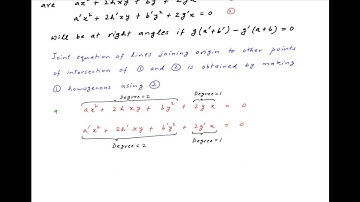 are ax² + 2hxy + by² + 2gx
a'x² + 2h'xy + b'y² + 2g'x = 0 ②
Will be at right angles if g(a'+b') - g'(a+b) = 0
Joint equation of lines joining origin to other points
of intersection of ① and ② is obtained by making
① homogenous using ②
Degree=2 Degree=1
ax² + 2hxy + by² + 2gx = 0
a'x² + 2h'xy + b'y² + 2g'x = 0
Degree=2 Degree=1